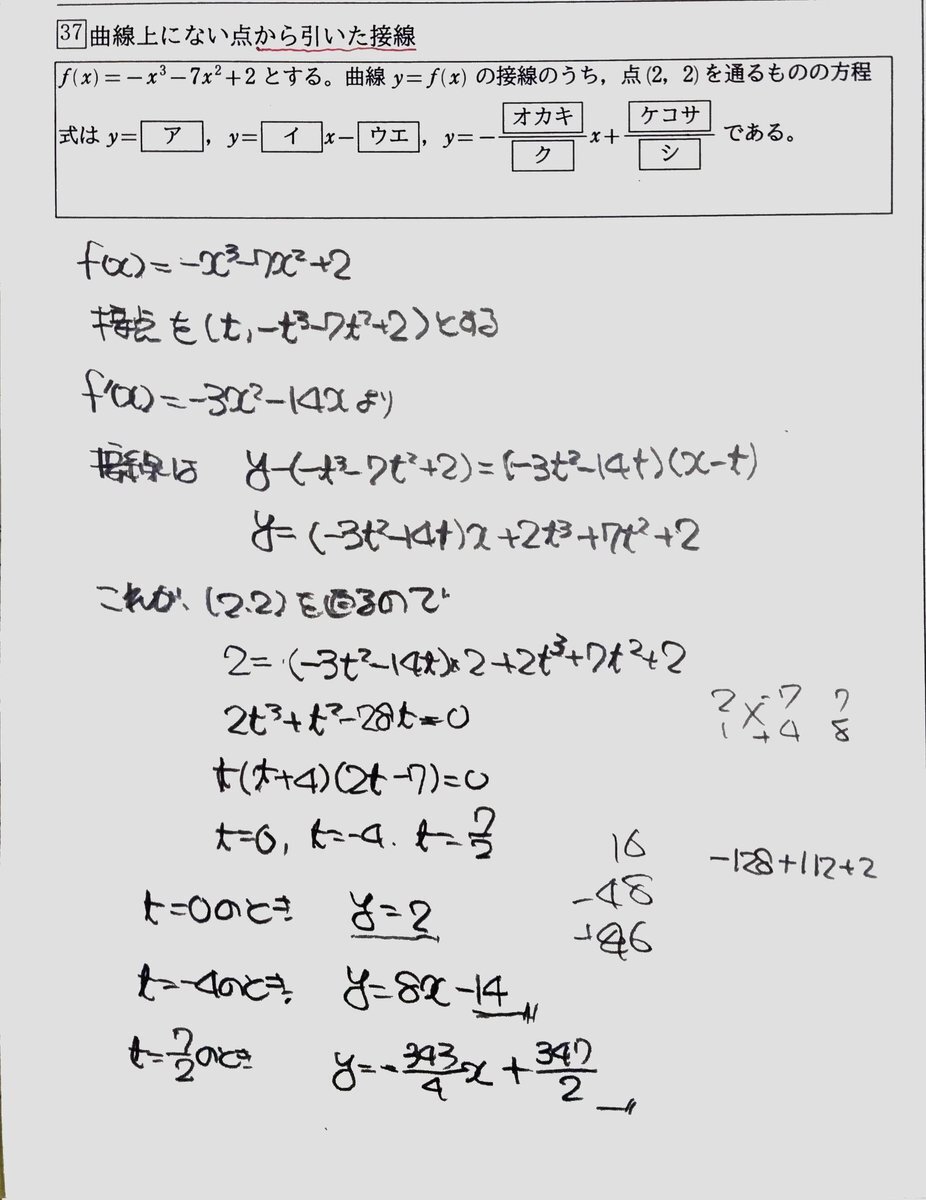 37 曲線上にない点から引いた接線
f(x)=-x³-7x²+2 とする。曲線 y=f(x) の接線のうち，点(2, 2)を通るものの方程
式は y=ア，y=イx-ウエ，y=-オカキ/ク x+ケコサ/シ である。
f(x)=-x³-7x²+2
接点を(t, -t³-7t²+2)とする
f'(x)=-3x²-14xより
接線は y-(-t³-7t²+2)=(-3t²-14t)(x-t)
y=(-3t²-14t)x+2t³+7t²+2
これが、(2.2)を通るので
2=(-3t²-14t)×2+2t³+7t²+2
2t³+t²-28t=0
2 -7 7
1 +4 8
t(t+4)(2t-7)=0
t=0, t=-4. t=7/2
16
-48
+46
-128+112+2
t=0のとき y=2
t=-4のとき、 y=8x-14
t=7/2のとき y=-343/4 x+347/2